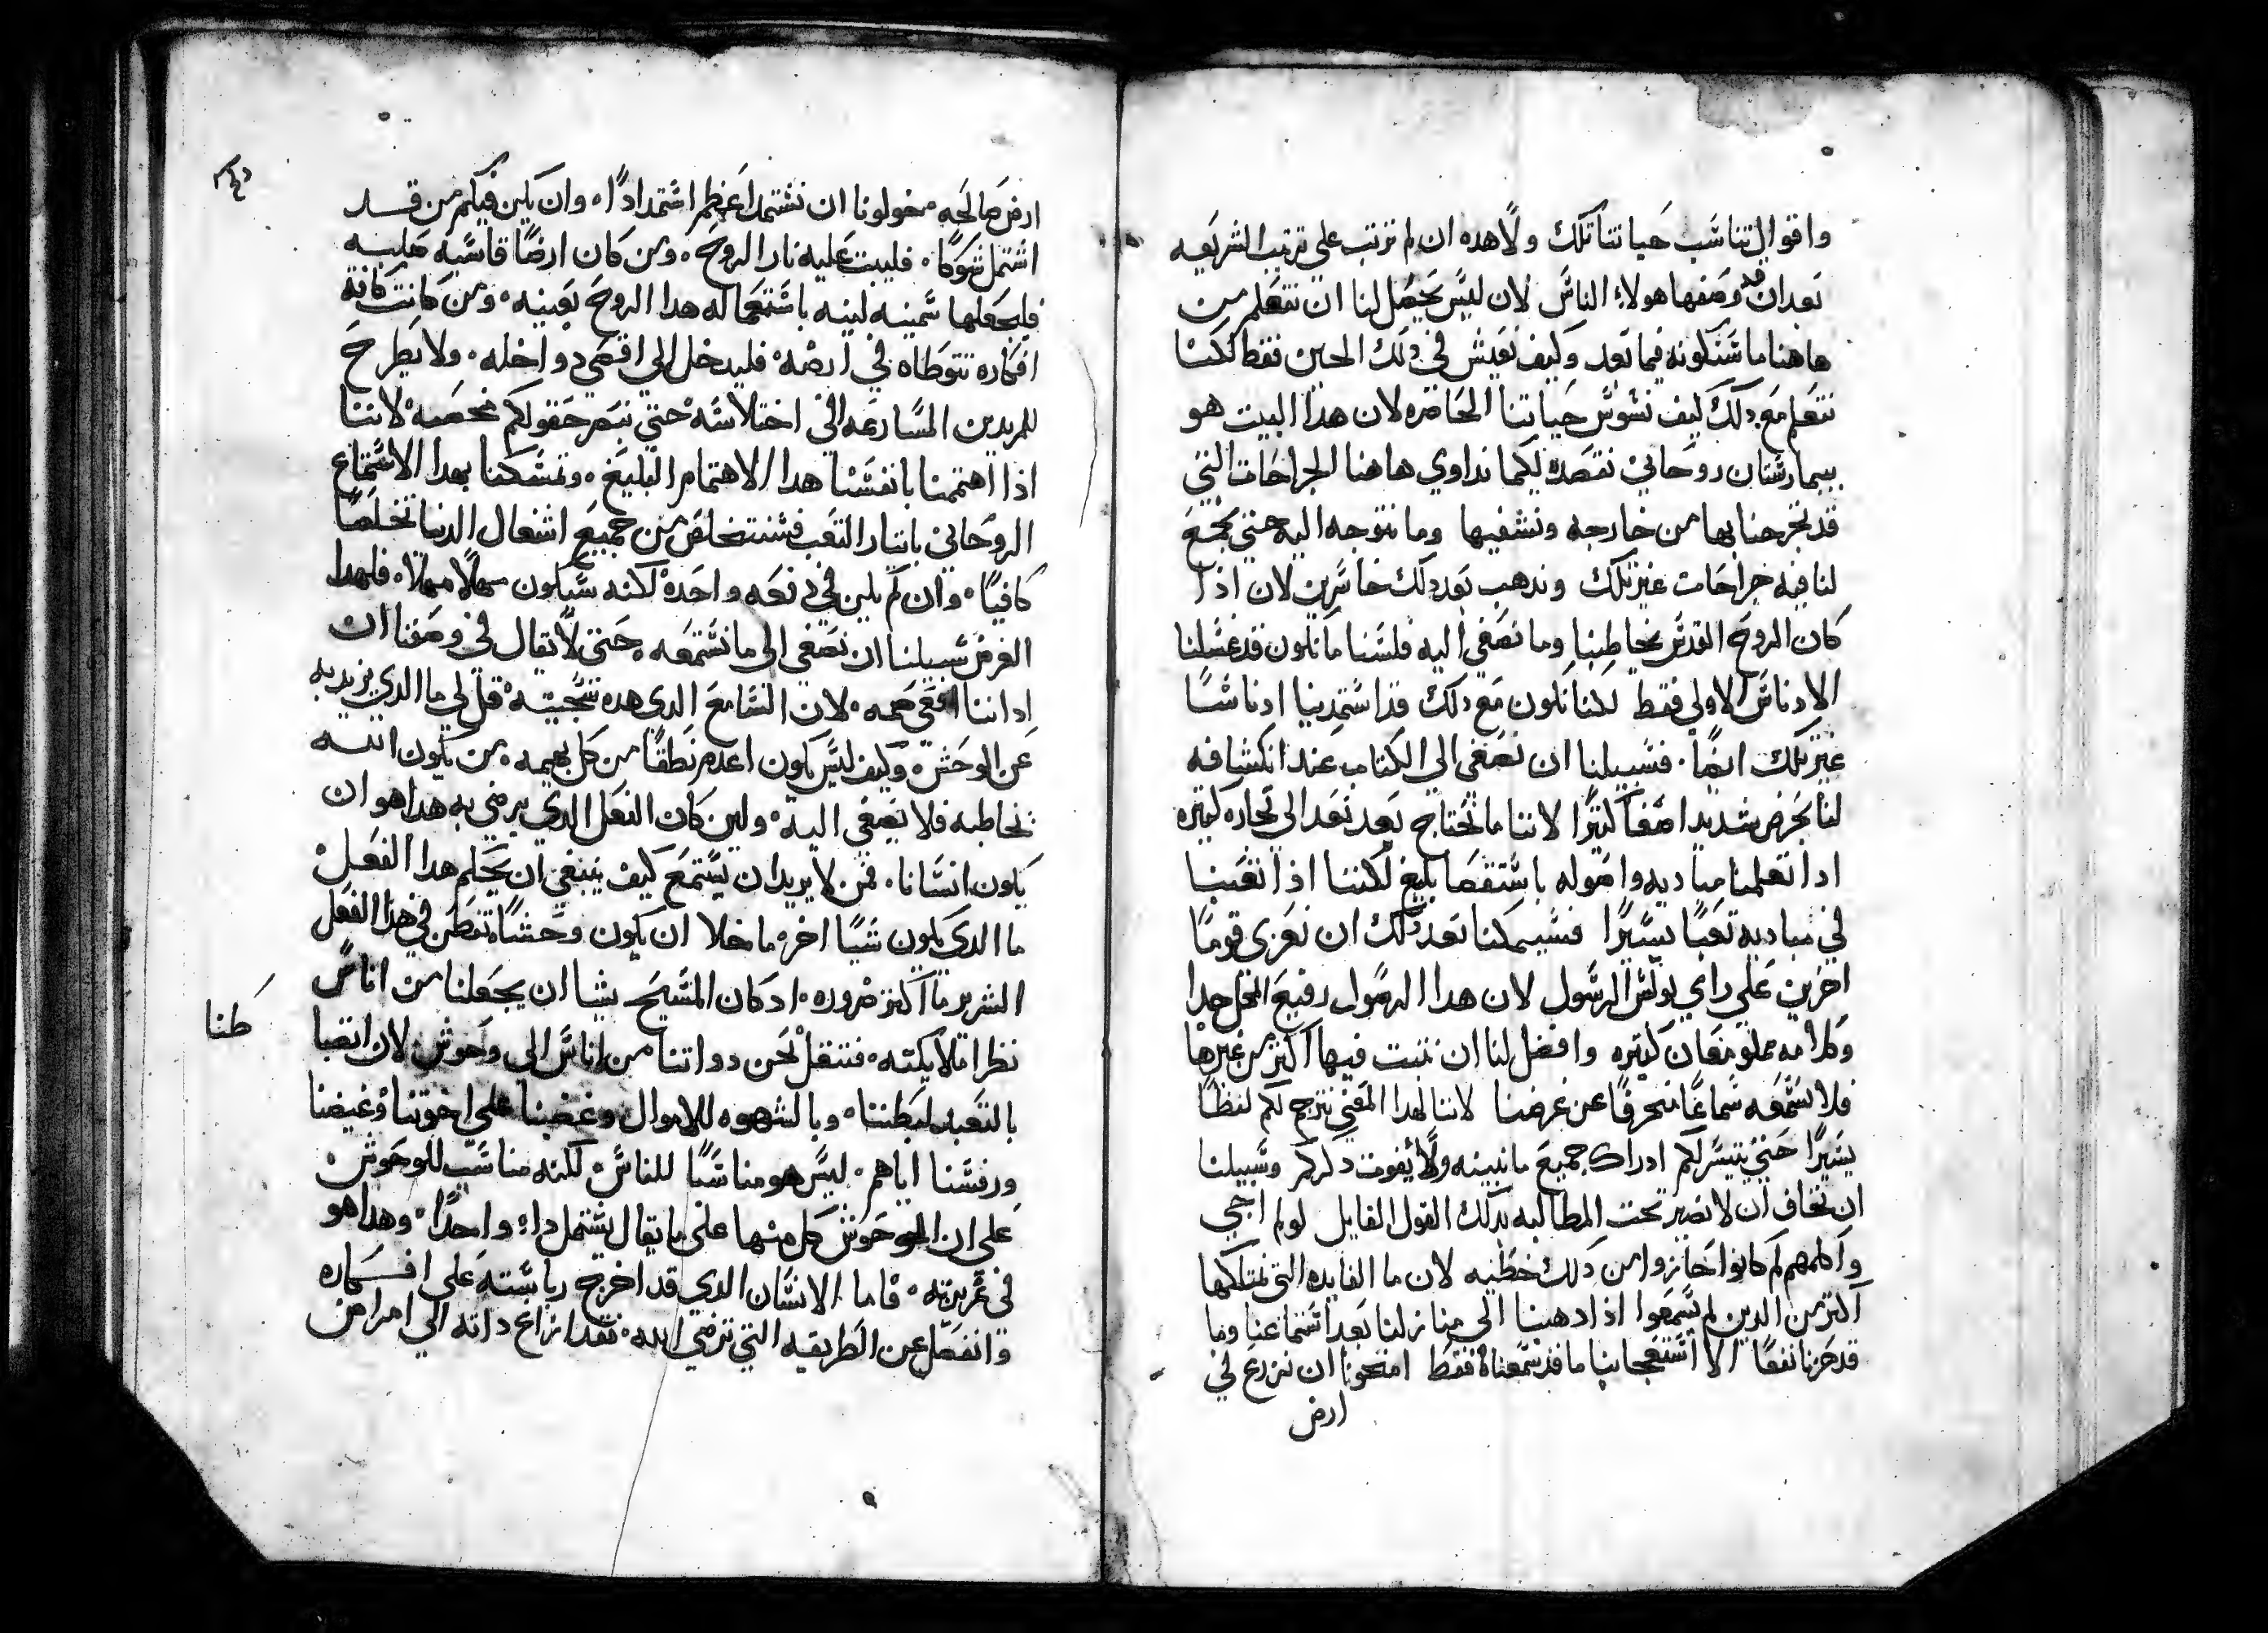 واقوال تناسب حياتنا تلك ولا هده ان لم نرتب على ترتيب الشريعه
بعد ان قد وصفها هولاء الناس لان ليس يحصل لنا ان نتعلم من
هاهنا ما سنكونه فيما بعد وكيف نعيش في دلك الحين فقط لكننا
نتعلم مع دلك كيف نسوس حياتنا الحاضره لان هدا البيت هو
بيمارستان روحاني نقصده لكيما نداوي هاهنا الجراحات التي
قد نجرحنا بها من خارجه ونشفيها وما نتوجه اليه حتى نجمع
لنا فيه جراحات غير تلك وندهب بعد دلك خاسرين لان اذا
كان الروح القدس يخاطبنا وما نصغي اليه فلسنا مانكون قد غسلنا
الادناس الاولى فقط لكنا نكون مع دلك قد استمدينا ادناسًا
غير تلك ايضًا. فسبيلنا ان نصغي الى الكتاب عند انكشافه
لنا بحرص شديد اصغآ كثيرًا لاننا ما نحتاج بعد نعد الى تجاره كثيره
ادا تعلمنا مباديه واصوله باستقصا بليغ لكننا اذا تعبنا
في مباديه تعبًا يسيرًا فسيمكننا بعد دلك ان نعزى قومًا
اخرين على راي بولس الرسول لان هدا الرسول رفيع المحل جدا
وكلامه مملو معان كثيره وافضل لنا ان نثبت فيها اكثر من غيرها
فلا نسمعه سماعًا منحرفًا عن غرضنا لاننا لهدا المعنى نترجم لكم لفظًا
يسيرًا حتى يتيسر لكم ادراك جميع ما نبينه ولا يفوت دكركم وسبيلنا
ان نخاف ان لا نصير تحت المطالبه بدلك القول القايل لو لم اجي
واكلمهم لم كانوا حازوا من دلك خطيه لان ما الفايده التي نمتلكها
اكثر من الدين لم يسمعوا اذا دهبنا الى منازلنا بعد استماعنا وما
قد حزنا نفعًا الا استعجابنا ما قد سمعناه فقط امنحونا ان نزرع في
ارض
ارض صالحه. خولونا ان نستمد اعظم استمدادًا. وان يكن فيكم من قد
اشتمل شوكًا. فليبت عليه نار الروح. ومن كان ارضًا قاسيه صلبه
فليجعلها سمينه لينه باستعماله هدا الروح بعينه. ومن كانت كافة
افكاره تتوطاه في ارضه. فليدخل الى اقصى دواخله. ولا يطرح
للمريدين المسارعه الى اختلاسه حتى نبصر حقولكم مخصبه لاننا
اذا اهتممنا بانفسنا هدا الاهتمام البليغ. وتمسكنا بهدا الاستماع
الروحاني بايثار التعب فسنتخلص من جميع اشغال الدنيا تخلصًا
كافيًا. وان لم يكن في دفعه واحده لكنه سيكون مهلًا مهلًا. فلهدا
الغرض سبيلنا ان نصغي الى ما نستمعه حتى لا يقال في وصفنا ان
اداننا افعى صمه. لان السامع الدي هده سجيته. قل لي ما الدي يزيد به
عن الوحش. وكيف ليس يكون اعدم نطقًا من كل بهيمه. من يكون الله
يخاطبه فلا يصغي اليه. ولين كان الفعل الدي يرضي به هدا هو ان
يكون انسانا. فمن لا يريد ان يستمع كيف ينبغي ان يحلم هدا الفعل
ما الدي يكون شيًا اخر ما خلا ان يكون وحشًا. فتفطن في هدا الفعل
الشرير ما اكثر ضروره. اد كان المسيح يشا ان يجعلنا من اناس
نظرا ملايكته. فننقل نحن دواتنا من اناس الى وحوش. لان انصبا
بالتعبد لبطننا. وبالشهوه للاموال وغضبنا على اخوتنا وغيضنا
ورفسنا اياهم. ليس هو مناسبًا للناس. لكنه مناسب للوحوش
على ان الوحوش كل منها على ما يقال يشتمل داء واحدًا. وهدا هو
في غريزته. فاما الانسان الدي قد اخرج رياسته على افكاره
وانفصل عن الطريقه التي ترضي الله. فقد ازاغ داته الى امراض
طنا